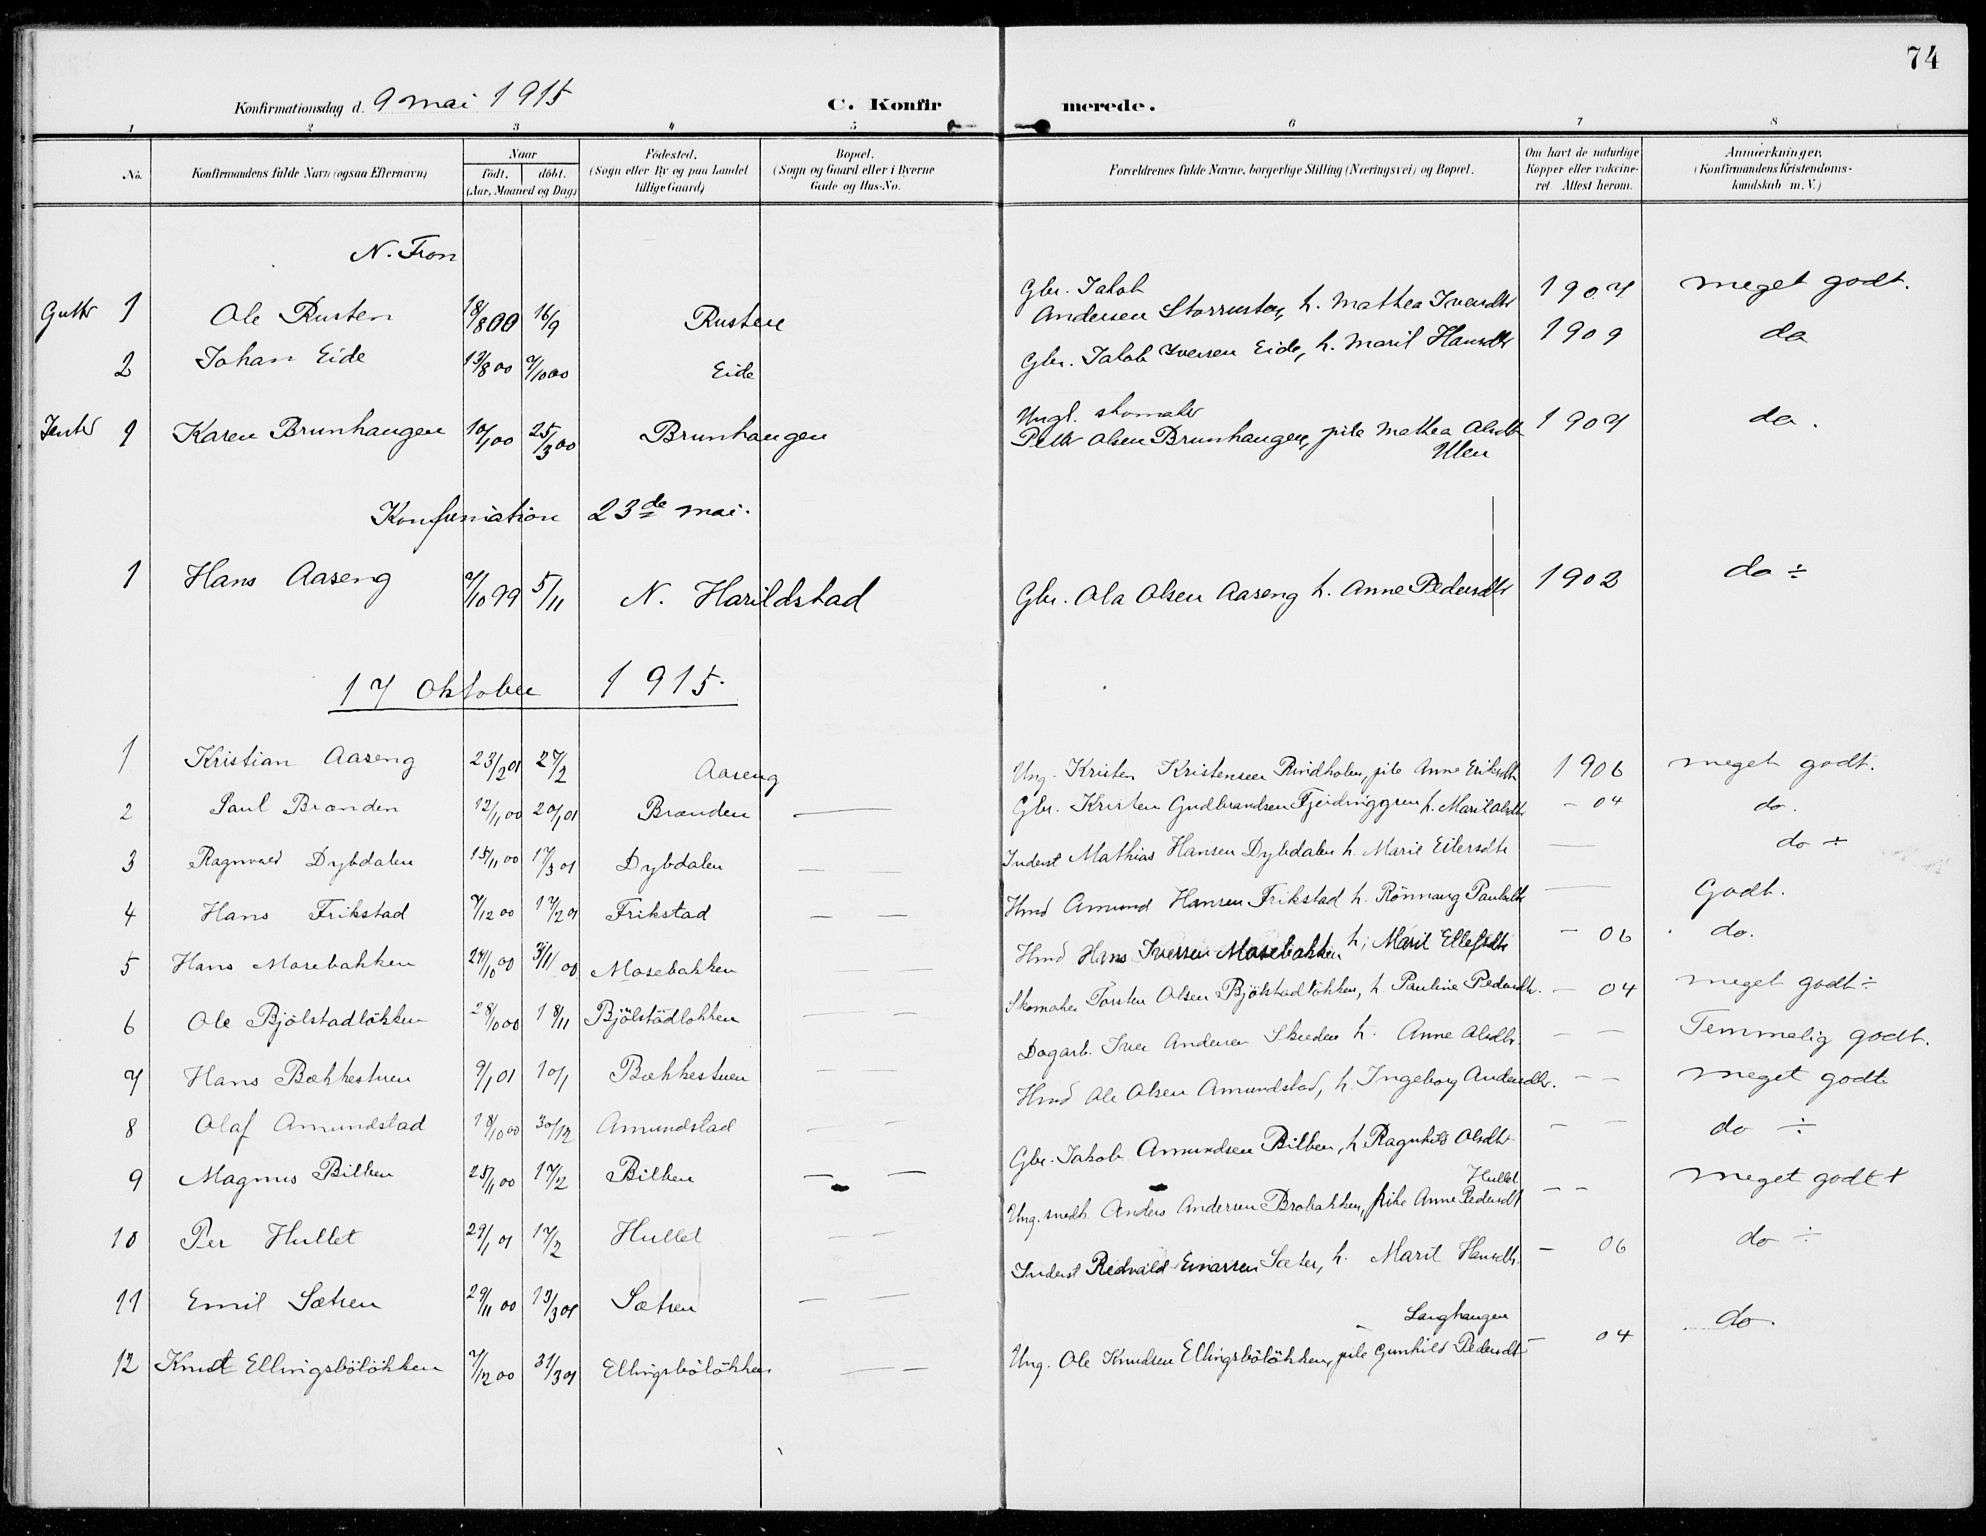 74
Konfirmationsdag d. 9 mai 1915 C. Konfirmerede.
1 2 3 4 5 6 7 8
No. Konfirmandens fulde Navn (ogsaa Efternavn) Naar født. døbt. (Aar, Maaned og Dag) Fødested. (Sogn eller By og paa Landet tillige Gaard) Bopæl. (Sogn og Gaard eller i Byerne Gade og Hus-No. Forældrenes fulde Navne, borgerlige Stilling (Næringsvei) og Bopæl. Om havt de naturlige Kopper eller vakcineret. Attest herom. Anmærkninger. (Konfirmandens Kristendomskundskab m. V.)
N. Fron
Gutter 1 Ole Rusten 18/8 00 16/9 Rusten Gbr. Jakob Andersen Storrusten, h. Mathea Iversdtr 1907 meget godt.
2 Johan Eide 13/8 00 7/10 00 Eide Gbr. Jakob Iversen Eide, h. Marit Hansdtr 1909 do
Jenter 1 Karen Brunhaugen 10/1 00 25/3 00 Brunhaugen Ungk. skomaker Petter Olsen Brunhaugen, pike Mathea Olsdtr Ulen 1907 do.
Konfirmation 23de mai.
1 Hans Aaseng 7/10 99 5/11 N. Harildstad Gbr. Ola Olsen Aaseng h. Anne Pedersdtr 1902 do ÷
17 Oktober 1915.
1 Kristian Aaseng 23/2 01 27/2 Aaseng Ung. Kristen Kristensen Rindholen, pike Anne Eriksdtr 1906 meget godt.
2 Paul Brænden 12/11 00 20/1 01 Brænden — Gbr. Kristen Gudbrandsen Fjerdinggren h. Marit Olsdtr – 04 do.
3 Ragnvald Dybdalen 15/11 00 17/3 01 Dybdalen — — Inderst Mathias Hansen Dybdalen h. Marie Eilersdtr — do ÷
4 Hans Frikstad 7/12 00 17/2 01 Frikstad — — Hmd Amund Hansen Frikstad h. Rönnaug Paulsdtr — Godt.
5 Hans Mosebakken 24/10 00 3/11 00 Mosebakken — — Hmd Hans Iversen Mosebakken h. Marit Ellefsdtr – 06 do.
6 Ole Bjölstadlökken 28/10 00 18/11 Bjölstadlökken — — Skomaker Torsten Olsen Bjölstadlökken, h. Pauline Pedersdtr. – 04 meget godt ÷
7 Hans Bækkestuen 9/1 01 10/1 Bækkestuen — — Dagarb. Iver Andersen Skreden h. Anne Olsdtr. – – Temmelig godt.
8 Olaf Amundstad 18/10 00 30/12 Amundstad — — Hmd Ole Olsen Amundstad, h. Ingeborg Andersdtr. – – meget godt
9 Magnus Bilben 25/11 00 17/2 Bilben — — Gbr. Jakob Amundsen Bilben, h Ragnhild Olsdtr – – do ÷
10 Per Hullet 29/1 01 17/2 Hullet — — Ung. smedk. Anders Andersen Brobakken, pike Anne Pedersdt Hullet – – meget godt +
11 Emil Sætren 29/11 00 13/3 01 Sætren — — Inderst Redvald Einarsen Sæter, h. Marit Hansdtr. – 06 do ÷
12 Knut Ellingsbölökken 7/12 00 31/3 01 Ellingsbölökken — Ung. Ole Knudsen Ellingsbölökken, pike Gunhild Pedersdt Langhaugen – 04 do.